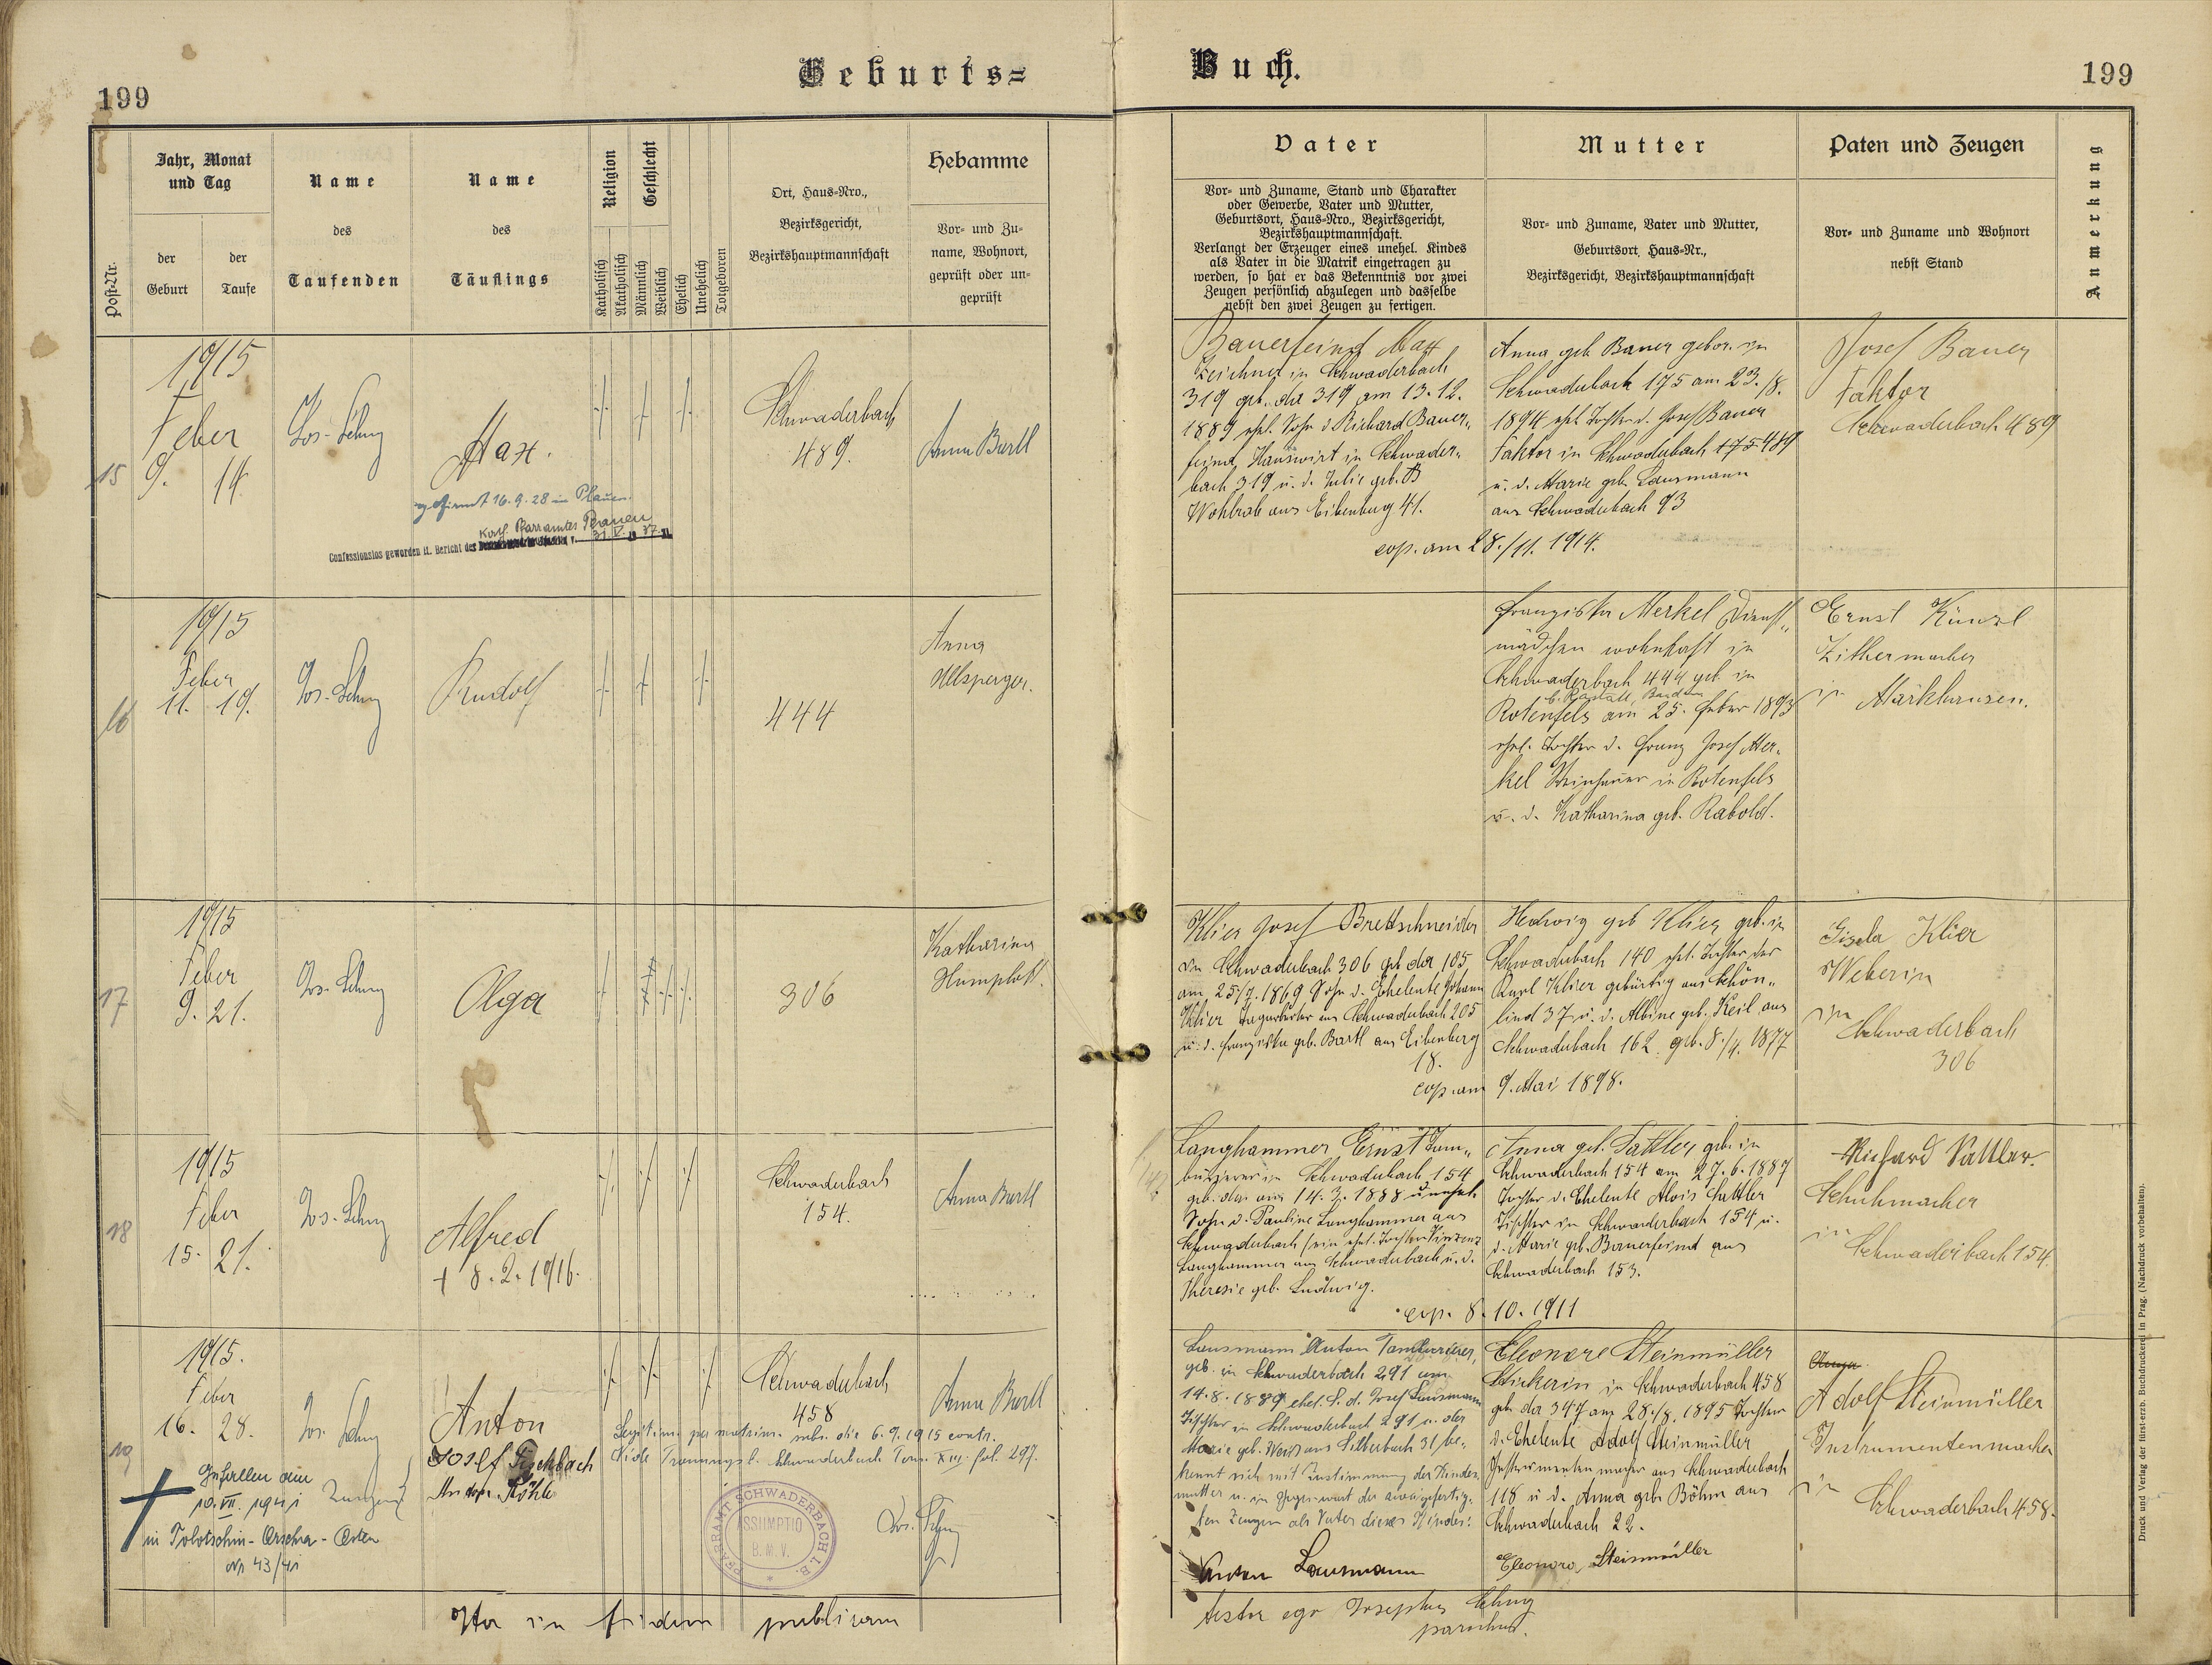 199
Geburts=
Buch.
199
Post-Nr.
Jahr, Monat
und Tag
der
Geburt
der
Taufe
Name
des
Taufenden
Name
des
Täuflings
Religion
Katholisch
Akatholisch
Geschlecht
Männlich
Weiblich
Ehelich
Unehelich
Totgeboren
Ort, Haus=Nro.,
Bezirksgericht,
Bezirkshauptmannschaft
Hebamme
Vor= und Zu=
name, Wohnort,
geprüft oder un=
geprüft
Vater
Vor= und Zuname, Stand und Charakter
oder Gewerbe, Vater und Mutter,
Geburtsort, Haus=Nro., Bezirksgericht,
Bezirkshauptmannschaft.
Verlangt der Erzeuger eines unehel. Kindes
als Vater in die Matrik eingetragen zu
werden, so hat er das Bekenntnis vor zwei
Zeugen persönlich abzulegen und dasselbe
nebst den zwei Zeugen zu fertigen.
Mutter
Vor= und Zuname, Vater und Mutter,
Geburtsort, Haus=Nr.,
Bezirksgericht, Bezirkshauptmannschaft
Paten und Zeugen
Vor= und Zuname und Wohnort
nebst Stand
Anmerkung
15
1915
Feber
9. 14.
Max.
gefirmt 16.9.28 in Plauen.
Kath. Pfarramtes Plauen
Confessionslos geworden lt. Bericht des
31. V. 1937
Schwaderbach
489.
Anna Bartl
Bauerfeind Max
Zeichner in Schwaderbach
319 geb. da 319 am 13.12.
1889 ehl. Sohn d. Richard Bauer„
feind, Hauswirt in Schwader„
bach 319 u. d. Julie geb.
Wohlrab aus Eibenberg 41.
Anna geb. Bauer gebor. in
Schwaderbach 175 am 23./8.
1894 ehl. Tochter d. Josef Bauer
Faktor in Schwaderbach 175 489
u. d. Marie geb. Lausmann
aus Schwaderbach 93
cop. am 28./11. 1914.
Josef Bauer
Faktor
Schwaderbach 489
16
1915
Feber
11. 19.
Rudolf
444
Anna
Franziska Merkel Dienst„
mädchen wohnhaft in
Schwaderbach 444 geb. in
b. Rastatt, Baden
Rotenfels am 25. Feber 1893
ehel. Tochter d. Franz Josef Mer„
kel in Rotenfels
u. d. Katharina geb. Rabold.
Ernst Künzl
Zithermacher
in Markhausen.
17
1915
Feber
9. 21.
Olga
306
Katharina
Klier Josef Brettschneider
in Schwaderbach 306 geb. da 105
am 25/7. 1869 Sohn d. Eheleute Johann
Klier Tagarbeiter aus Schwaderbach 205
u. d. Franziska geb. Bartl aus Eibenberg
18.
Hedwig geb. Klier geb. in
Schwaderbach 140 ehl. Tochter der
Karl Klier gebürtig aus Schön„
lind 37 u. d. Albine geb. Keil aus
Schwaderbach 162. geb. 8./4. 1877
cop. am 9. Mai 1898.
Gisela Klier
Weberin
in
Schwaderbach
306
18
1915
Feber
15. 21.
Alfred
+ 8.2.1916.
Schwaderbach
154.
Anna Bartl
Langhammer Ernst Tam„
burierer in Schwaderbach 154
geb. da am 14.3.1888 unehl.
Sohn d. Pauline Langhammer aus
Schwaderbach ehl. Tochter Vinzenz
Langhammer aus Schwaderbach u. d.
Theresie geb. Ludwig.
Anna geb. Sattler, geb. in
Schwaderbach 154 am 27.6.1887
Tochter d. Eheleute Alois Sattler
Tischler in Schwaderbach 154 u.
d. Marie geb. Bauerfeind aus
Schwaderbach 153.
cop. 8.10.1911
Richard Sattler.
Schuhmacher
in
Schwaderbach 154.
19
1915.
Feber
16. 28.
Anton
Schwaderbach
458
Anna Bartl
Legitim. per matrim. subs. die 6.9.1915 contr.
Vide Trauungsb. Schwaderbach Tom. XIII. fol. 297.
Josef Fischbach
Gefallen am
10. VII. 1941
in Tolotschin-Orscha-Osten
No 43/41
PFARRAMT SCHWADERBACH I. B.
ASSUMPTIO
B. M. V.
Lausmann Anton Tamburierer,
geb. in Schwaderbach 291 am
14.8.1889 ehel. S. d. Josef Lausmann
Tischler in Schwaderbach 291 u. der
Marie geb. Weis aus Silberbach 31 be„
kennt sich mit Zustimmung der Kindes„
mutter u. in Gegenwart der zwei gefertig„
ten Zeugen als Vater dieses Kindes:
Anton Lausmann
Eleonore Steinmüller
Stickerin in Schwaderbach 458
geb. da 347 am 28./8. 1895 Tochter
d. Eheleute Adolf Steinmüller
Instrumentenmacher aus Schwaderbach
118 u. d. Anna geb. Böhm aus
Schwaderbach 22.
Eleonore Steinmüller
Adolf Steinmüller
Instrumentenmacher
in
Schwaderbach 458.
Ita in fidem publicam
testor ego Josephus
parochus.
Druck und Verlag der fürst-erzb. Buchdruckerei in Prag. (Nachdruck vorbehalten).